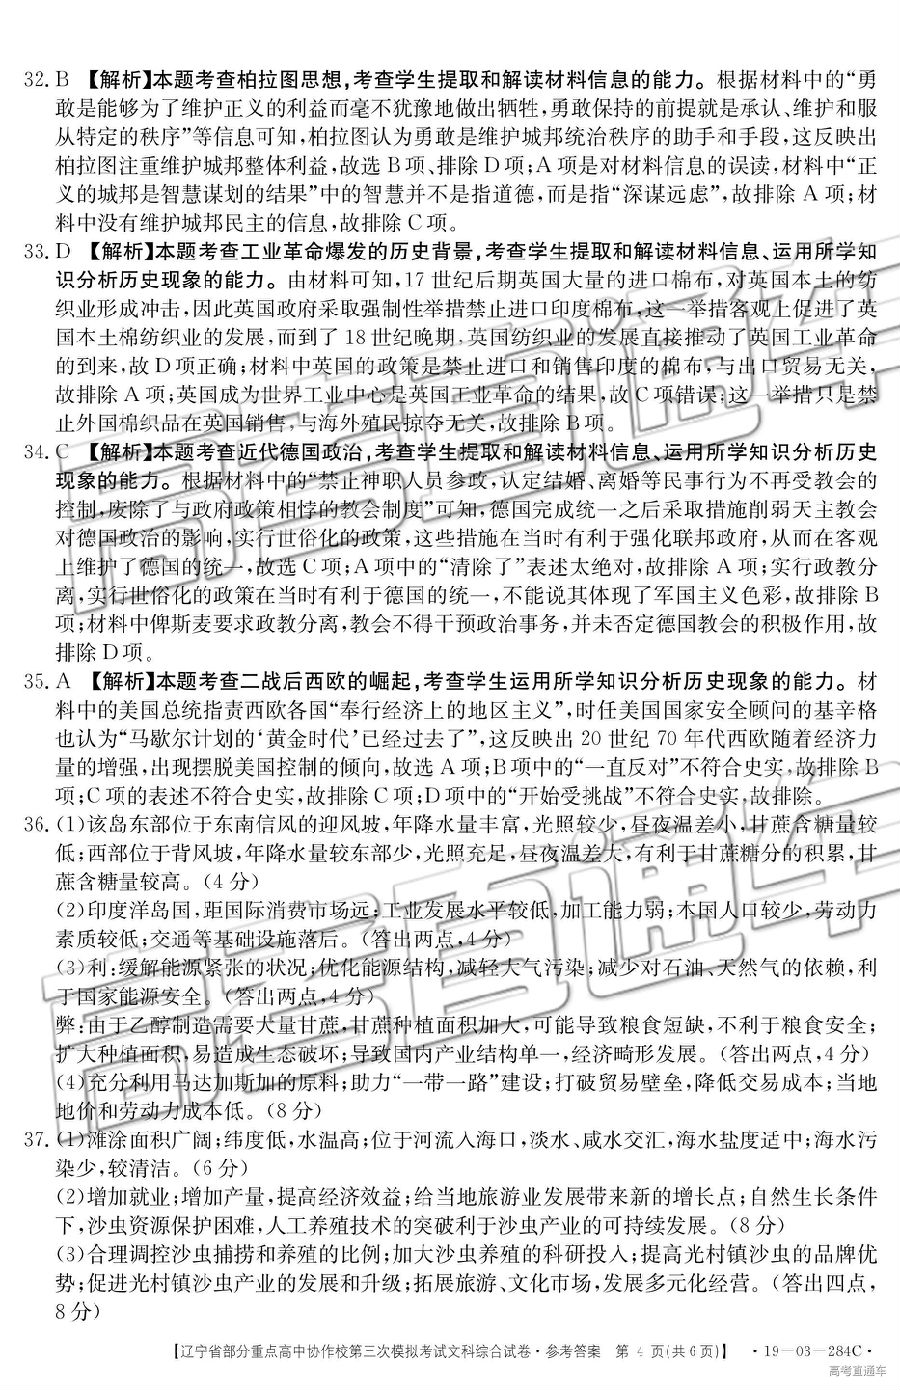 32. B 【解析】本题考查柏拉图思想,考查学生提取和解读材料信息的能力。根据材料中的“勇
敢是能够为了维护正义的利益而毫不犹豫地做出牺牲,勇敢保持的前提就是承认、维护和服
从特定的秩序”等信息可知,柏拉图认为勇敢是维护城邦统治秩序的助手和手段,这反映出
柏拉图注重维护城邦整体利益,故选B项、排除D项;A项是对材料信息的误读,材料中“正
义的城邦是智慧谋划的结果”中的智慧并不是指道德,而是指“深谋远虑”,故排除A项;材
料中没有维护城邦民主的信息,故排除C项。
33. D 【解析】本题考查工业革命爆发的历史背景,考查学生提取和解读材料信息、运用所学知
识分析历史现象的能力。由材料可知,17世纪后期英国大量的进口棉布,对英国本土的纺
织业形成冲击,因此英国政府采取强制性举措禁止进口印度棉布,这一举措客观上促进了英
国本土棉纺织业的发展,而到了18世纪晚期,英国纺织业的发展直接推动了英国工业革命
的到来,故D项正确;材料中英国的政策是禁止进口和销售印度的棉布,与出口贸易无关,
故排除A项;英国成为世界工业中心是英国工业革命的结果,故C项错误;这一举措只是禁
止外国棉织品在英国销售,与海外殖民掠夺无关,故排除B项。
34. C 【解析】本题考查近代德国政治,考查学生提取和解读材料信息、运用所学知识分析历史
现象的能力。根据材料中的“禁止神职人员参政,认定结婚、离婚等民事行为不再受教会的
控制,废除了与政府政策相悖的教会制度”可知,德国完成统一之后采取措施削弱天主教会
对德国政治的影响,实行世俗化的政策,这些措施在当时有利于强化联邦政府,从而在客观
上维护了德国的统一,故选C项;A项中的“清除了”表述太绝对,故排除A项;实行政教分
离,实行世俗化的政策在当时有利于德国的统一,不能说其体现了军国主义色彩,故排除B
项;材料中俾斯麦要求政教分离,教会不得干预政治事务,并未否定德国教会的积极作用,故
排除D项。
35. A 【解析】本题考查二战后西欧的崛起,考查学生运用所学知识分析历史现象的能力。材
料中的美国总统指责西欧各国“奉行经济上的地区主义”,时任美国国家安全顾问的基辛格
也认为“马歇尔计划的‘黄金时代’已经过去了”,这反映出20世纪70年代西欧随着经济力
量的增强,出现摆脱美国控制的倾向,故选A项;B项中的“一直反对”不符合史实,故排除B
项;C项的表述不符合史实,故排除C项;D项中的“开始受挑战”不符合史实,故排除。
36. (1)该岛东部位于东南信风的迎风坡,年降水量丰富,光照较少,昼夜温差小,甘蔗含糖量较
低;西部位于背风坡,年降水量较东部少,光照充足,昼夜温差大,有利于甘蔗糖分的积累,甘
蔗含糖量较高。(4分)
(2)印度洋岛国,距国际消费市场远;工业发展水平较低,加工能力弱;本国人口较少,劳动力
素质较低;交通等基础设施落后。(答出两点,4分)
(3)利:缓解能源紧张的状况;优化能源结构,减轻大气污染;减少对石油、天然气的依赖,利
于国家能源安全。(答出两点,4分)
弊:由于乙醇制造需要大量甘蔗,甘蔗种植面积加大,可能导致粮食短缺,不利于粮食安全;
扩大种植面积,易造成生态破坏;导致国内产业结构单一,经济畸形发展。(答出两点,4分)
(4)充分利用马达加斯加的原料;助力“一带一路”建设;打破贸易壁垒,降低交易成本;当地
地价和劳动力成本低。(8分)
37. (1)滩涂面积广阔;纬度低,水温高;位于河流入海口,淡水、咸水交汇,海水盐度适中;海水污
染少,较清洁。(6分)
(2)增加就业;增加产量,提高经济效益;给当地旅游业发展带来新的增长点;自然生长条件
下,沙虫资源保护困难,人工养殖技术的突破利于沙虫产业的可持续发展。(8分)
(3)合理调控沙虫捕捞和养殖的比例;加大沙虫养殖的科研投入;提高光村镇沙虫的品牌优
势;促进光村镇沙虫产业的发展和升级;拓展旅游、文化市场,发展多元化经营。(答出四点,
8分)
【辽宁省部分重点高中协作校第三次模拟考试文科综合试卷·参考答案 第4页(共6页)】 ·19—03—284C·
高考直通车
高考直通车
高考直通车